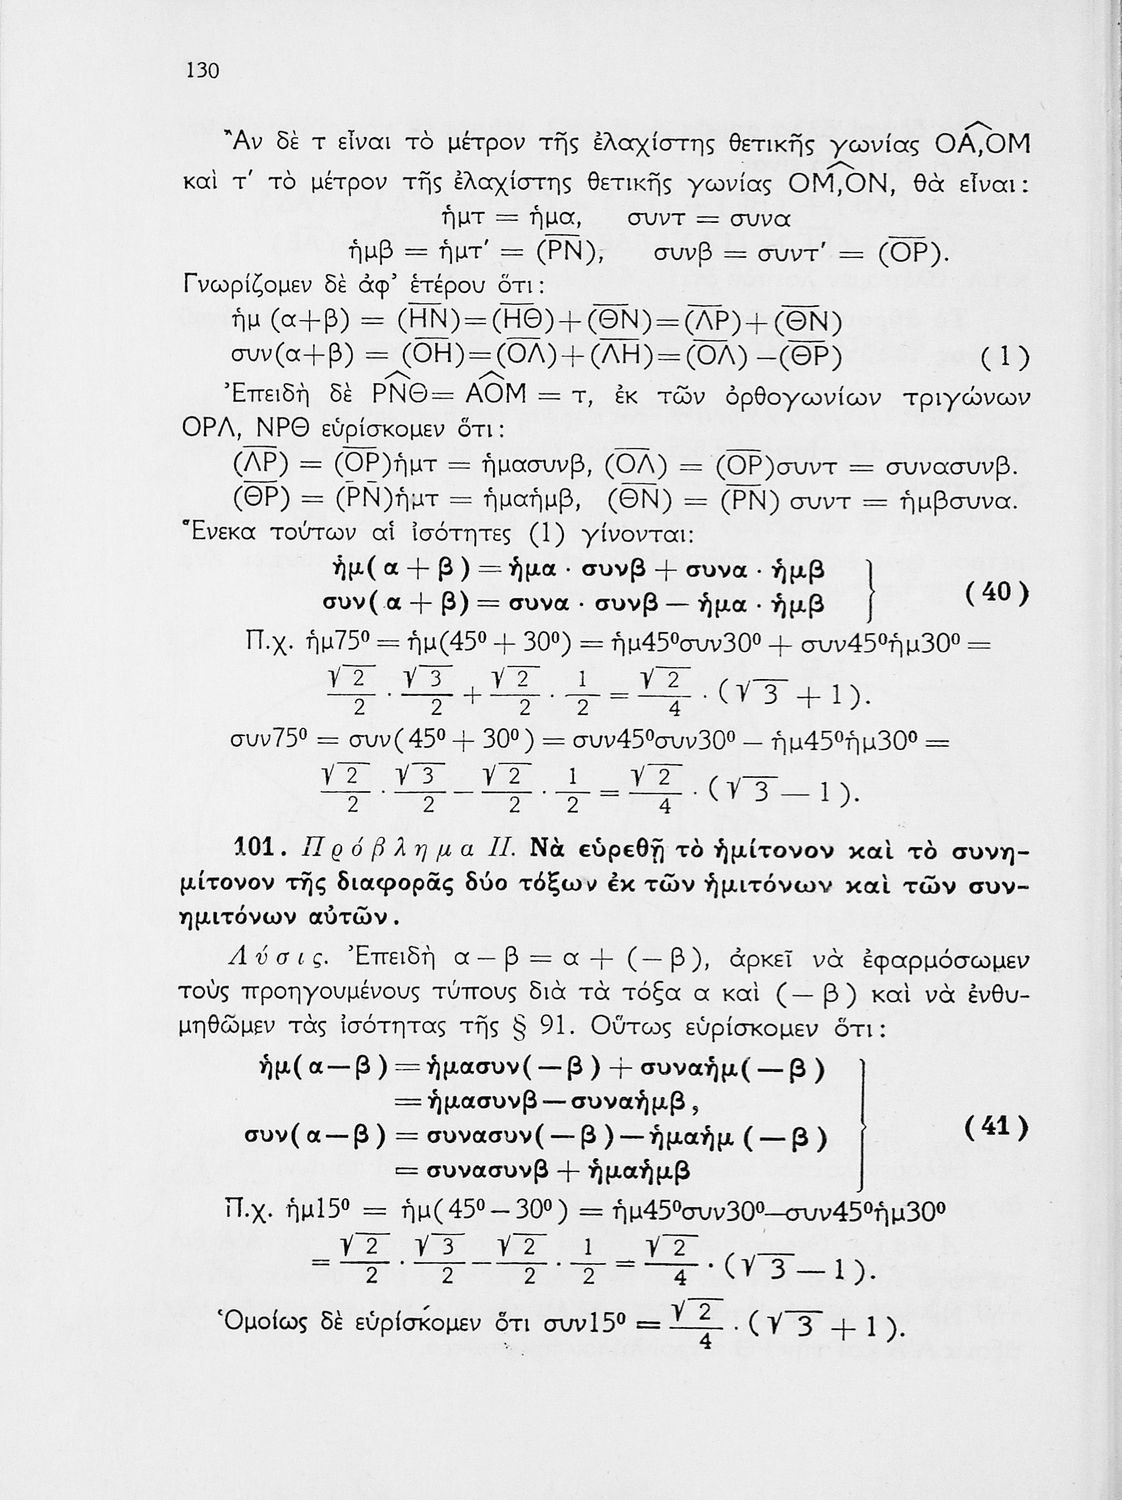 130
Ἂν δὲ τ εἶναι τὸ μέτρον τῆς ἐλαχίστης θετικῆς γωνίας ΟΑ,ΟΜ
καὶ τ′ τὸ μέτρον τῆς ἐλαχίστης θετικῆς γωνίας ΟΜ,ΟΝ, θὰ εἶναι:
ἡμτ = ἡμα, συντ = συνα
ἡμβ = ἡμτ′ = (Ρ̅Ν̅), συνβ = συντ′ = (Ο̅Ρ̅).
Γνωρίζομεν δὲ ἀφ᾽ ἑτέρου ὅτι:
ἡμ (α+β) = (Η̅Ν̅)=(Η̅Θ̅)+(Θ̅Ν̅)=(Λ̅Ρ̅)+(Θ̅Ν̅)
συν(α+β) = (Ο̅Η̅)=(Ο̅Λ̅)+(Λ̅Η̅)=(Ο̅Λ̅) –(Θ̅Ρ̅) (1)
Ἐπειδὴ δὲ ΡΝ̂Θ= ΑΟ̂Μ = τ, ἐκ τῶν ὀρθογωνίων τριγώνων
ΟΡΛ, ΝΡΘ εὑρίσκομεν ὅτι:
(Λ̅Ρ̅) = (Ο̅Ρ̅)ἡμτ = ἡμασυνβ, (Ο̅Λ̅) = (Ο̅Ρ̅)συντ = συνασυνβ.
(Θ̅Ρ̅) = (Ρ̅Ν̅)ἡμτ = ἡμαἡμβ, (Θ̅Ν̅) = (Ρ̅Ν̅) συντ = ἡμβσυνα.
Ἕνεκα τούτων αἱ ἰσότητες (1) γίνονται:
ἡμ( α + β ) = ἡμα · συνβ + συνα · ἡμβ
συν( α + β) = συνα · συνβ — ἡμα · ἡμβ } (40)
Π.χ. ἡμ75⁰ = ἡμ(45⁰ + 30⁰) = ἡμ45⁰συν30⁰ + συν45⁰ἡμ30⁰ =
√2/2 · √3/2 + √2/2 · 1/2 = √2/4 · (√3 + 1).
συν75⁰ = συν( 45⁰ + 30⁰ ) = συν45⁰συν30⁰ – ἡμ45⁰ἡμ30⁰ =
√2/2 · √3/2 — √2/2 · 1/2 = √2/4 · (√3 — 1).
101. Πρόβλημα ΙΙ. Νὰ εὑρεθῇ τὸ ἡμίτονον καὶ τὸ συνη-
μίτονον τῆς διαφορᾶς δύο τόξων ἐκ τῶν ἡμιτόνων καὶ τῶν συν-
ημιτόνων αὐτῶν.
Λύσις. Ἐπειδὴ α – β = α + (– β), ἀρκεῖ νὰ ἐφαρμόσωμεν
τοὺς προηγουμένους τύπους διὰ τὰ τόξα α καὶ (– β) καὶ νὰ ἐνθυ-
μηθῶμεν τὰς ἰσότητας τῆς § 91. Οὕτως εὑρίσκομεν ὅτι:
ἡμ( α—β ) = ἡμασυν( — β ) + συναἡμ( — β )
= ἡμασυνβ — συναἡμβ,
συν( α—β ) = συνασυν( — β ) — ἡμαἡμ ( — β ) } (41)
= συνασυνβ + ἡμαἡμβ
Π.χ. ἡμ15⁰ = ἡμ( 45⁰ – 30⁰ ) = ἡμ45⁰συν30⁰—συν45⁰ἡμ30⁰
= √2/2 · √3/2 — √2/2 · 1/2 = √2/4 · (√3 — 1).
Ὁμοίως δὲ εὑρίσκομεν ὅτι συν15⁰ = √2/4 · (√3 + 1).